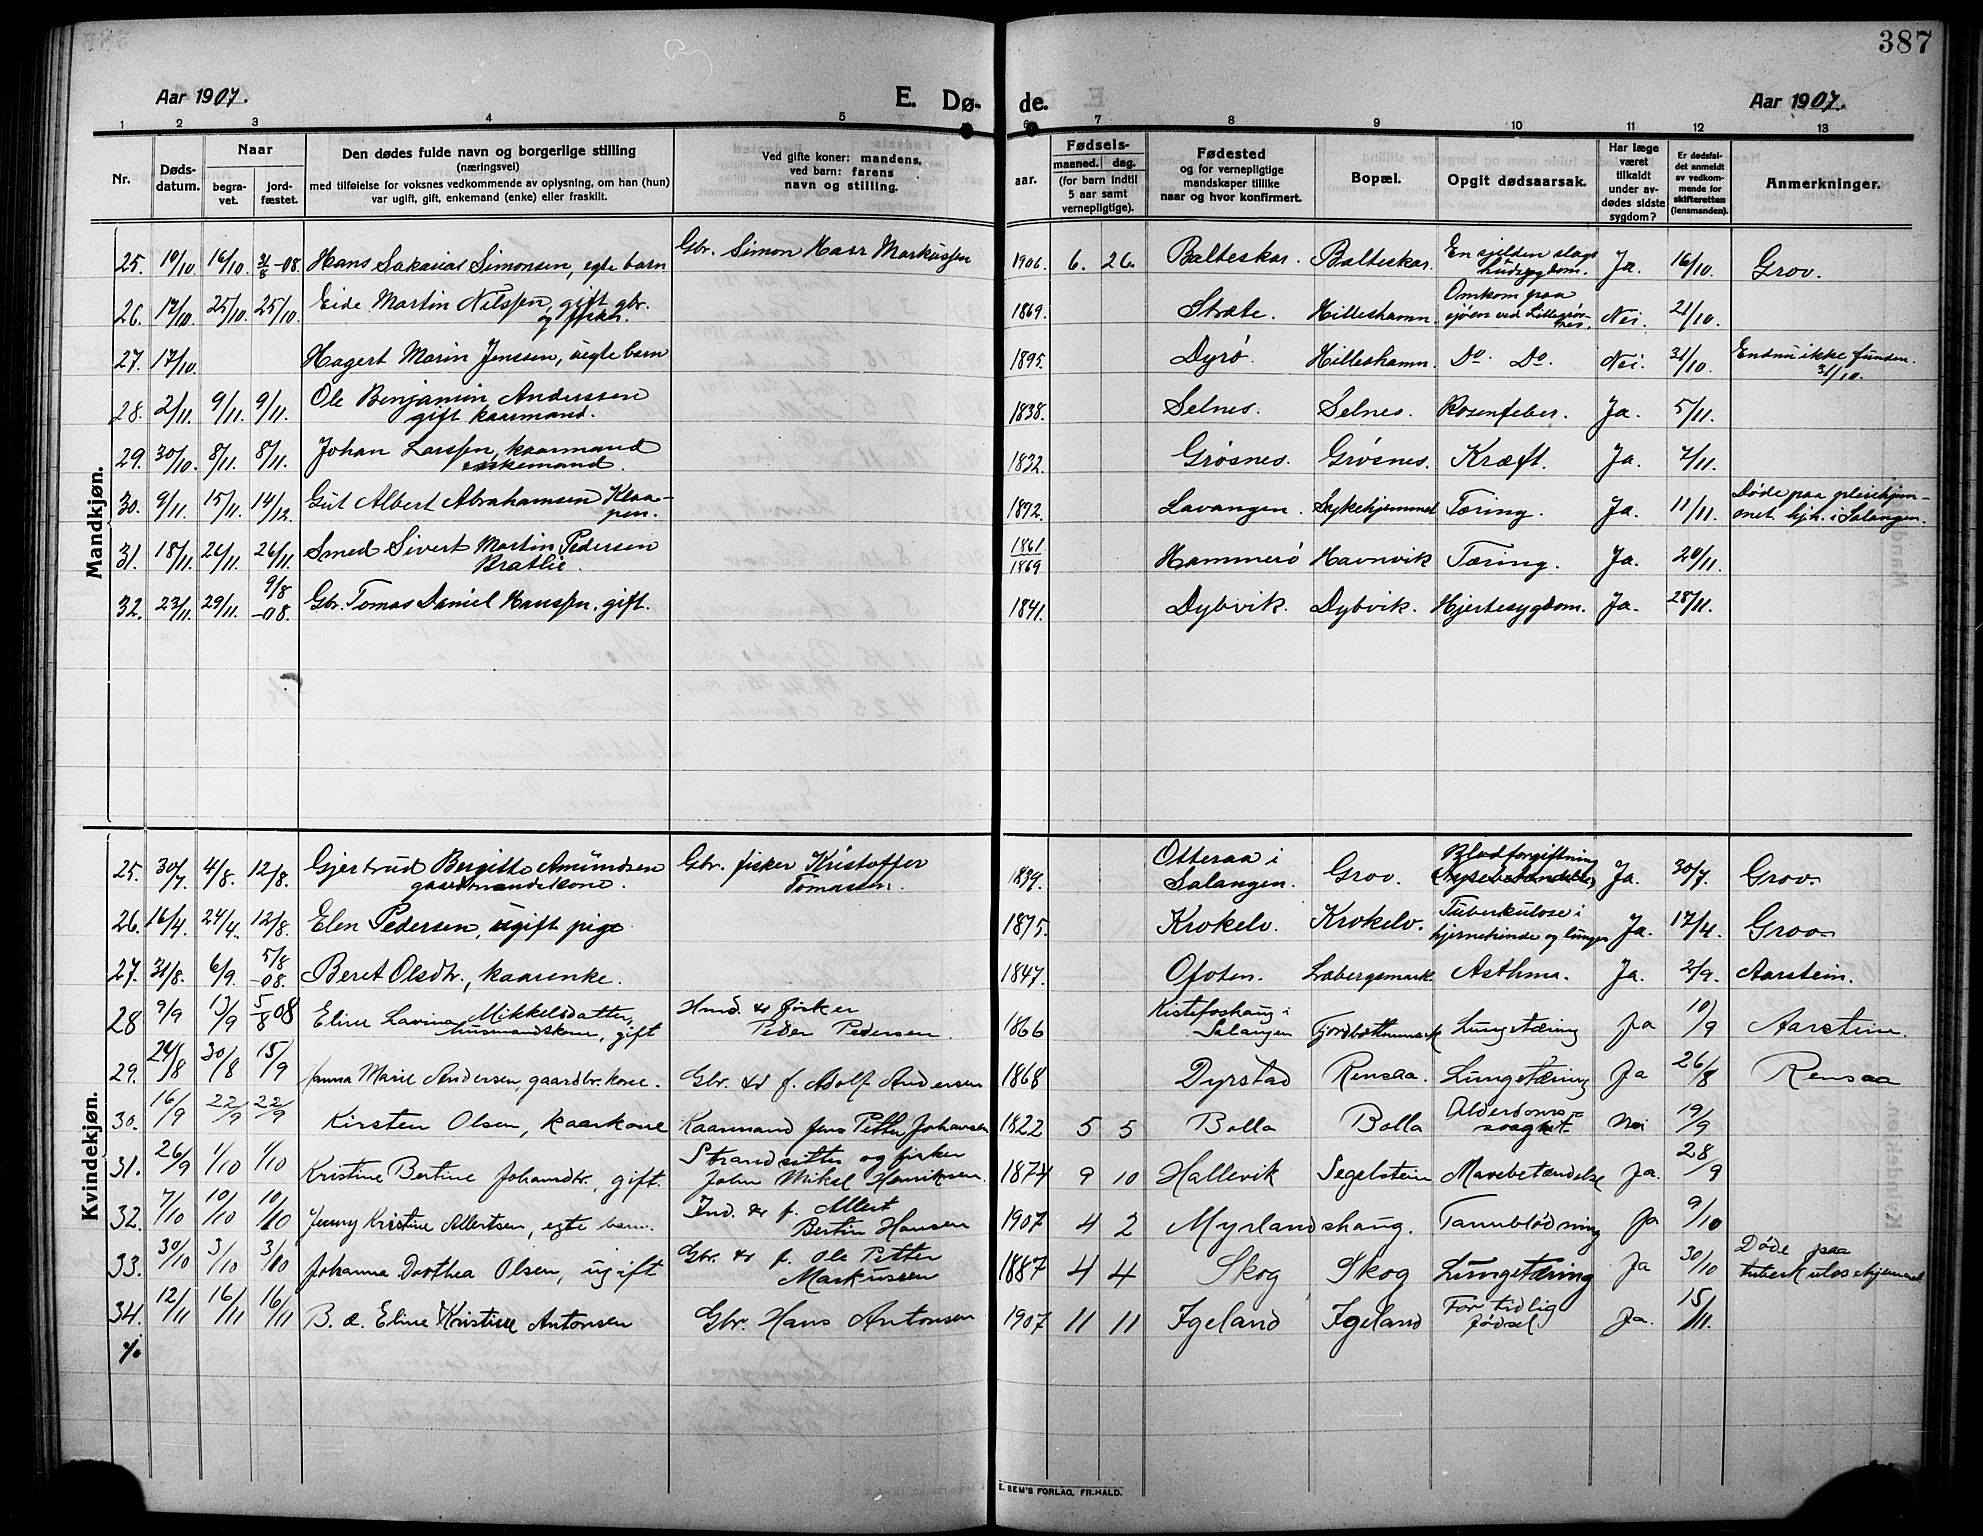 387
Aar 1907. E. Dø- de. Aar 1907.
1 2 3 4 5 6 7 8 9 10 11 12 13
Nr.
Døds-
datum.
Naar
begra-
vet.
jord-
fæstet.
Den dødes fulde navn og borgerlige stilling
(næringsvei)
med tilføielse for voksnes vedkommende av oplysning, om han (hun)
var ugift, gift, enkemand (enke) eller fraskilt.
Ved gifte koner: mandens,
ved barn: farens
navn og stilling.
Fødsels-
aar. maaned. dag.
(for barn indtil
5 aar samt
vernepligtige).
Fødested
og for vernepligtige
mandskaper tillike
naar og hvor konfirmert.
Bopæl.
Opgit dødsaarsak.
Har læge
været
tilkaldt
under av-
dødes sidste
sygdom?
Er dødsfal-
det anmeldt
av vedkom-
mende for
skifteretten
(lensmanden).
Anmerkninger.
Mandkjøn.
25. 10/10 16/10. 31/8-08. Hans Sakarias Simonsen, egte barn Gbr. Simon Haar Markussen 1906. 6. 26. Balteskar. Balteskar. En sjelden slags
hudsygdom. Ja. 16/10. Grov.
26. 17/10. 25/10. 25/10. Eide Martin Nilssen, gift gbr.
og fisker. 1869. Strate. Hilleshamn. Omkom paa
sjøen ved Lillegrøs-
nes. Nei. 21/10.
27. 17/10. Hagert Marin Jenssen, uegte barn 1895. Dyrø. Hilleshamn. Do. Do. Nei. 31/10. Endnu ikke funden.
31/10.
28. 2/11. 9/11. 9/11. Ole Benjamin Anderssen
gift kaarmand. 1838. Selnes. Selnes. Rosenfeber. Ja. 5/11.
29. 30/10. 8/11. 8/11. Johan Larssen, kaarmand
enkemand. 1832. Grøsnes. Grøsnes. Kræft. Ja. 7/11.
30. 9/11. 15/11. 14/12. Gut Albert Abrahamsen Klaa-
pen. 1892. Lavangen. Sykehjemmet Tæring. Ja. 11/11. Døde paa pleiehjem-
met hjh. i Salangen.
31. 18/11. 26/11. 26/11. Smed Sivert Martin Pedersen
Bratlie. 1861
1869 Hammerø Havnvik Tæring. Ja. 20/11.
32. 23/11. 29/11. 9/8
-08. Gbr. Tomas Daniel Hanssen, gift. 1841. Dybvik. Dybvik. Hjertesygdom. Ja. 28/11.
Kvindekjøn.
25. 30/7. 4/8. 12/8. Gjertrud Bergitte Amundsen
gaardmandskone. Gbr. fisker Kristoffer
Tomassen. 1839. Otteraa i
Salangen. Grov. Blodforgiftning
Ja. 30/7. Grov.
26. 16/4. 24/4. 12/8. Elen Pedersen, ugift pige 1875. Krokelv. Krokelv. Tuberkulose i
hjernehinde og lunger Ja. 17/4. Grov.
27. 31/8. 6/9. 5/8
-08. Beret Olsdtr., kaarenke. 1847. Ofoten. Labergsmark Asthma. Ja. 2/9. Aarstein.
28 9/9 13/9 5/8 08 Eline Lavina Mikkelsdatter,
husmandskone, gift Hmd. & fisker
Peder Pedersen. 1866 Kistefoshaug i
Salangen Fjordbotnmark Lungetæring Ja 10/9 Aarstein.
29. 24/8 30/8 15/9 Hanna Marie Andersen, gaardbr. kone. Gbr. & f. Adolf Andersen 1868 Dyrstad Rensaa. Lungetæring Ja 26/8 Rensaa
30. 16/9 22/9 22/9 Kirsten Olsen, kaarkone Kaarmand Jens Petter Johansen 1822 5 5 Bolla Bolla Alderdoms-
svaghet. Nei 19/9
31. 26/9 1/10 1/10 Kristine Bertine Johansdtr., gift. Strandsitter og fisker
Johan Mikal Henriksen. 1874 9 10 Hallevik Segelstein Mavebetændelse Ja. 28/9
32. 7/10 10/10 10/10 Jenny Kristine Albertsen, egte barn. Ind. & f. Albert
Bertin Hansen 1907 4 2 Myrlandshaug. Tarmblødning Ja 9/10
33. 30/10 3/10 3/10 Johanna Dorthea Olsen, ugift Gbr. & f. Ole Petter
Markussen 1887 4 4 Skog Skog Lungetæring Ja 30/10 Døde paa
tuberkulosehjemmet
34. 12/11 16/11 16/11 B. æ. Eline Kristine Antonsen Gbr. Hans Antonsen 1907 11 11 Igeland Igeland For tidlig
fødsel Ja. 15/11.
E. SEM'S FORLAG, FR.HALD.